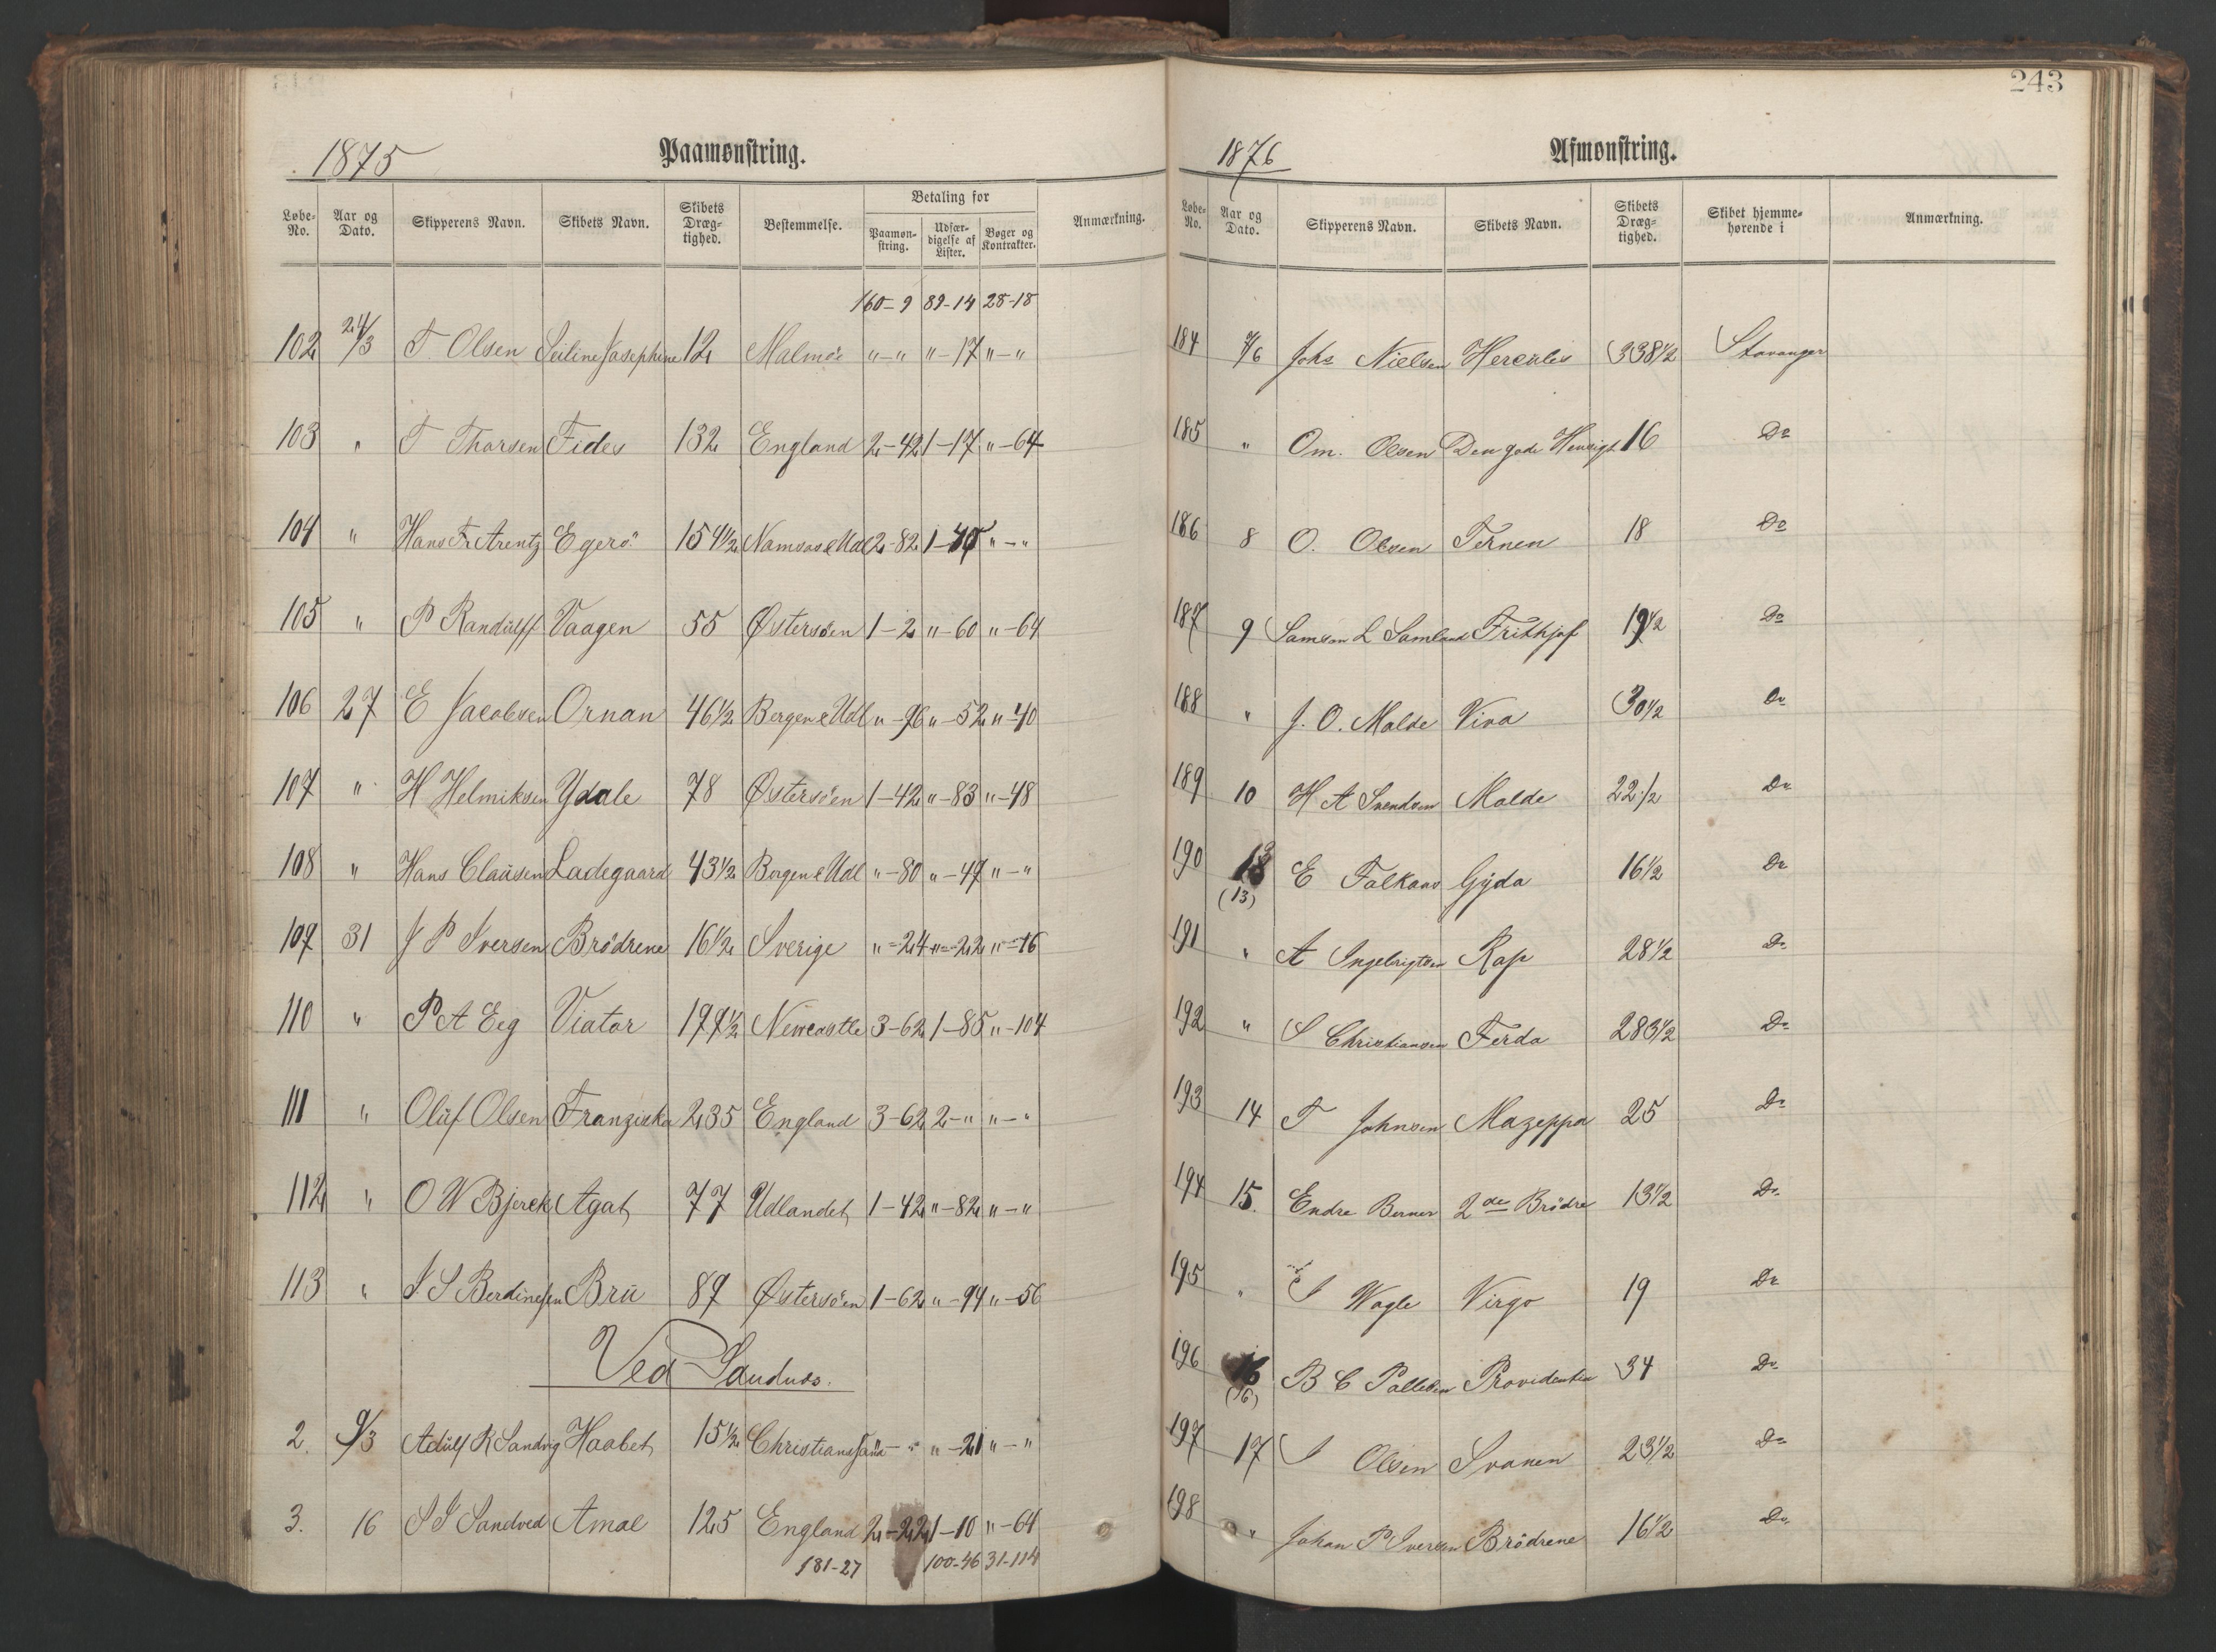 1875 Paamønstring.
Løbe-No. Aar og Dato. Skipperens Navn. Skibets Navn. Skibets Dræg-tighed. Bestemmelse. Betaling for Paamøn-string. Udfær-digelse af Lister. Bøger og Kontrakter. Anmærkning.
160-9 89-14 28-18
102 24/3 T. Olsen Seiline Josephine 12 Malmöe "-" "-17 "-"
103 " T Thorsen Fides 132 England 2-42 1-17 "-64
104 " Hans Fr Arentz Egerö 154 1/2 Namsos & Udl 2-82 1- "-"
105 " P Randulff Vaagen 55 Østersöen 1-2 "-60 "-64
106 27 E Jacobsen Ornan 46 1/2 Bergen & Udl "-96 "-52 "-40
107 " H Helmiksen Ydale 78 Østersöen 1-42 "-83 "-48
108 " Hans Clausen Ladegaard 43 1/2 Bergen & Udl "-80 "-49 "-"
109 31 J P Iversen Brödrene 16 1/2 Sverige "-24 "-22 "-16
110 " P A Eeg Viator 199 1/2 Newcastle 3-62 1-85 "-104
111 " Oluf Olsen Franziska 235 England 3-62 2-" "-"
112 " O W Bjerck Agat 77 Udlandet 1-42 "-82 "-"
113 " J S Berdinesen Bru 89 Østersöen 1-62 "-94 "-56
Ved Sandnes.
2. 9/3 Adulf R Sandvig Haabet 15 1/2 Christianssund - " "-21 "-"
3. 16 S J Sandved Amal 125 England 2-22 1-10 "-64
181-27 100-46 31-114
243
1876 Afmønstring.
Løbe-No. Aar og Dato. Skipperens Navn. Skibets Navn. Skibets Dræg-tighed. Skibet hjemme-hørende i Anmærkning.
184 7/6 Johs Nielsen Hercules 338 1/2 Stavanger
185 " Om. Olsen Den gode Hensigt 16 Do
186 8 O. Olsen Ternen 18 Do
187 9 Samson L Samland Frithjof 19 1/2 Do
188 " J. O. Malde Viva 30 1/2 Do
189 10 H A Svendsen Malde 22 1/2 Do
190 13 (13) E Falkans Gyda 16 1/2 Do
191 " A Ingebrigtsen Rap 28 1/2 Do
192 " S Christiansen Ferda 283 1/2 Do
193 14 T Johnsen Mazeppa 25 Do
194 15. Endre Berner 2de Brödre 13 1/2 Do
195 " S Wagle Virgo 19 Do
196 16 (16) B C Pallesen Providentia 34 Do
197 17 S Olsen Svanen 23 1/2 Do
198 " Johan P Iversen Brödrene 16 1/2 Do